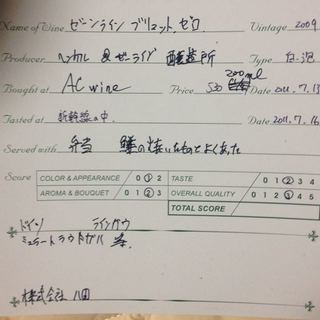 Name of Wine ゼーンライン ブリュット、ゼロ Vintage 2009
Producer ヘンケル & ゼーンライン 醸造所 Type 白、泡
200ml
Bought at AC wine Price 520 Date 2011. 7. 13
Tasted at 新幹線の中. Date 2011. 7. 16
Served with 弁当 鱒の焼いたものとよくあった
Score COLOR & APPEARANCE 0 1 2 TASTE 0 1 2 3 4
AROMA & BOUQUET 0 1 2 3 OVERALL QUALITY 0 1 2 3 4 5
TOTAL SCORE
ドイツ ラインガウ
ミュラートゥルガウ
株式会社 八田